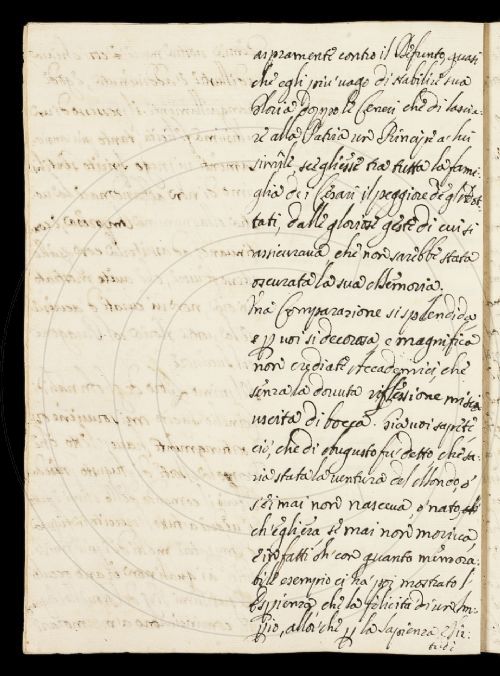 aspramente contro il Defunto, quasi
che egli più vago di stabilire sua
gloria doppo le Ceneri che di lascia:
re alla Patria un Principe a lui
simile, scegliesse tra tutta la fami:
glia dei Cesari il peggiore degl'
tati, dalle gloriose geste di cui si
assicurava che non sarebbe stata
oscurata la sua Memoria.
Una Comparazione si splendida,
e p voi si decorosa, e magnifica
non crediate, Accademici, che
senza la dovuta riflessione mi sia
uscita di bocca. Già voi sapete
ciò, che di Augusto fu detto che sa:
ria stata la ventura del Mondo, o
s'ei mai non nasceva, o nato
ch'egli era se mai non moriva,
e in fatti oh con quanto memora:
bile esempio ci ha poi mostrato l'
Esperienza, che la felicità d'un Im:
pio, allor che p la Sapienza, e Vir:
tù di